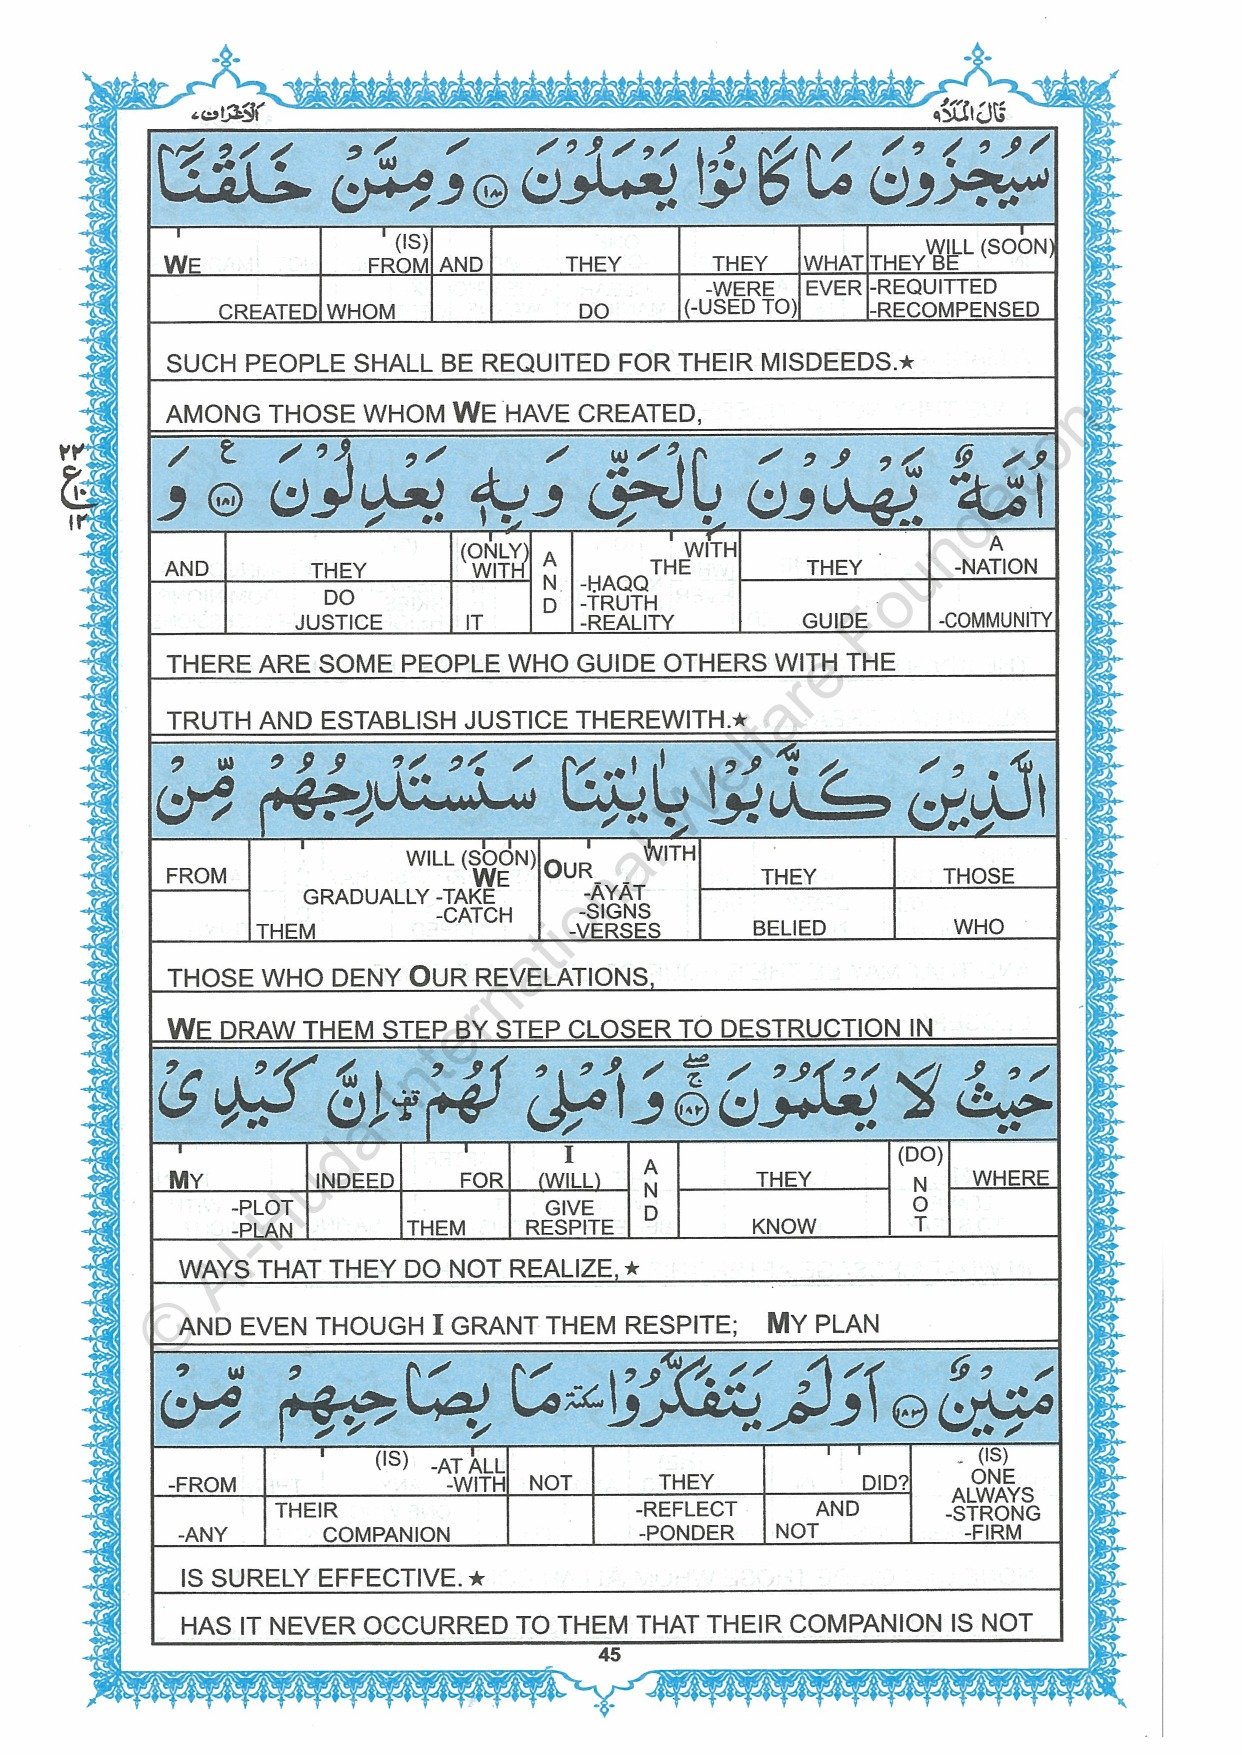 الاعراف ٧
قال الملا ٩
سَيُجْزَوْنَ مَا كَانُوْا يَعْمَلُوْنَ ١٨٠ وَمِمَّنْ خَلَقْنَآ
WE CREATED | (IS) FROM WHOM | AND | THEY DO | THEY -WERE (-USED TO) | WHAT EVER | WILL (SOON) THEY BE -REQUITTED -RECOMPENSED
SUCH PEOPLE SHALL BE REQUITED FOR THEIR MISDEEDS.★
AMONG THOSE WHOM WE HAVE CREATED,
٢٢
ع
١٠
١٢
اُمَّةٌ يَّهْدُوْنَ بِالْحَقِّ وَبِهٖ يَعْدِلُوْنَ ١٨١ ع وَ
AND | THEY DO JUSTICE | (ONLY) WITH IT | AND | WITH THE -ḤAQQ -TRUTH -REALITY | THEY GUIDE | A -NATION -COMMUNITY
THERE ARE SOME PEOPLE WHO GUIDE OTHERS WITH THE
TRUTH AND ESTABLISH JUSTICE THEREWITH.★
الَّذِيْنَ كَذَّبُوْا بِاٰيٰتِنَا سَنَسْتَدْرِجُهُمْ مِّنْ
FROM | WILL (SOON) WE GRADUALLY -TAKE -CATCH THEM | WITH OUR -ĀYĀT -SIGNS -VERSES | THEY BELIED | THOSE WHO
THOSE WHO DENY OUR REVELATIONS,
WE DRAW THEM STEP BY STEP CLOSER TO DESTRUCTION IN
حَيْثُ لَا يَعْلَمُوْنَ ١٨٢ صلے ج وَاُمْلِيْ لَهُمْ قف ط اِنَّ كَيْدِيْ
MY -PLOT -PLAN | INDEED | FOR THEM | I (WILL) GIVE RESPITE | AND | THEY KNOW | (DO) NOT | WHERE
WAYS THAT THEY DO NOT REALIZE,★
AND EVEN THOUGH I GRANT THEM RESPITE; MY PLAN
مَتِيْنٌ ١٨٣ اَوَلَمْ يَتَفَكَّرُوْا سكتة مَا بِصَاحِبِهِمْ مِّنْ
-FROM -ANY | (IS) -AT ALL -WITH THEIR COMPANION | NOT | THEY -REFLECT -PONDER | DID? AND NOT | (IS) ONE ALWAYS -STRONG -FIRM
IS SURELY EFFECTIVE.★
HAS IT NEVER OCCURRED TO THEM THAT THEIR COMPANION IS NOT
45
© Al-Huda International Welfare Foundation